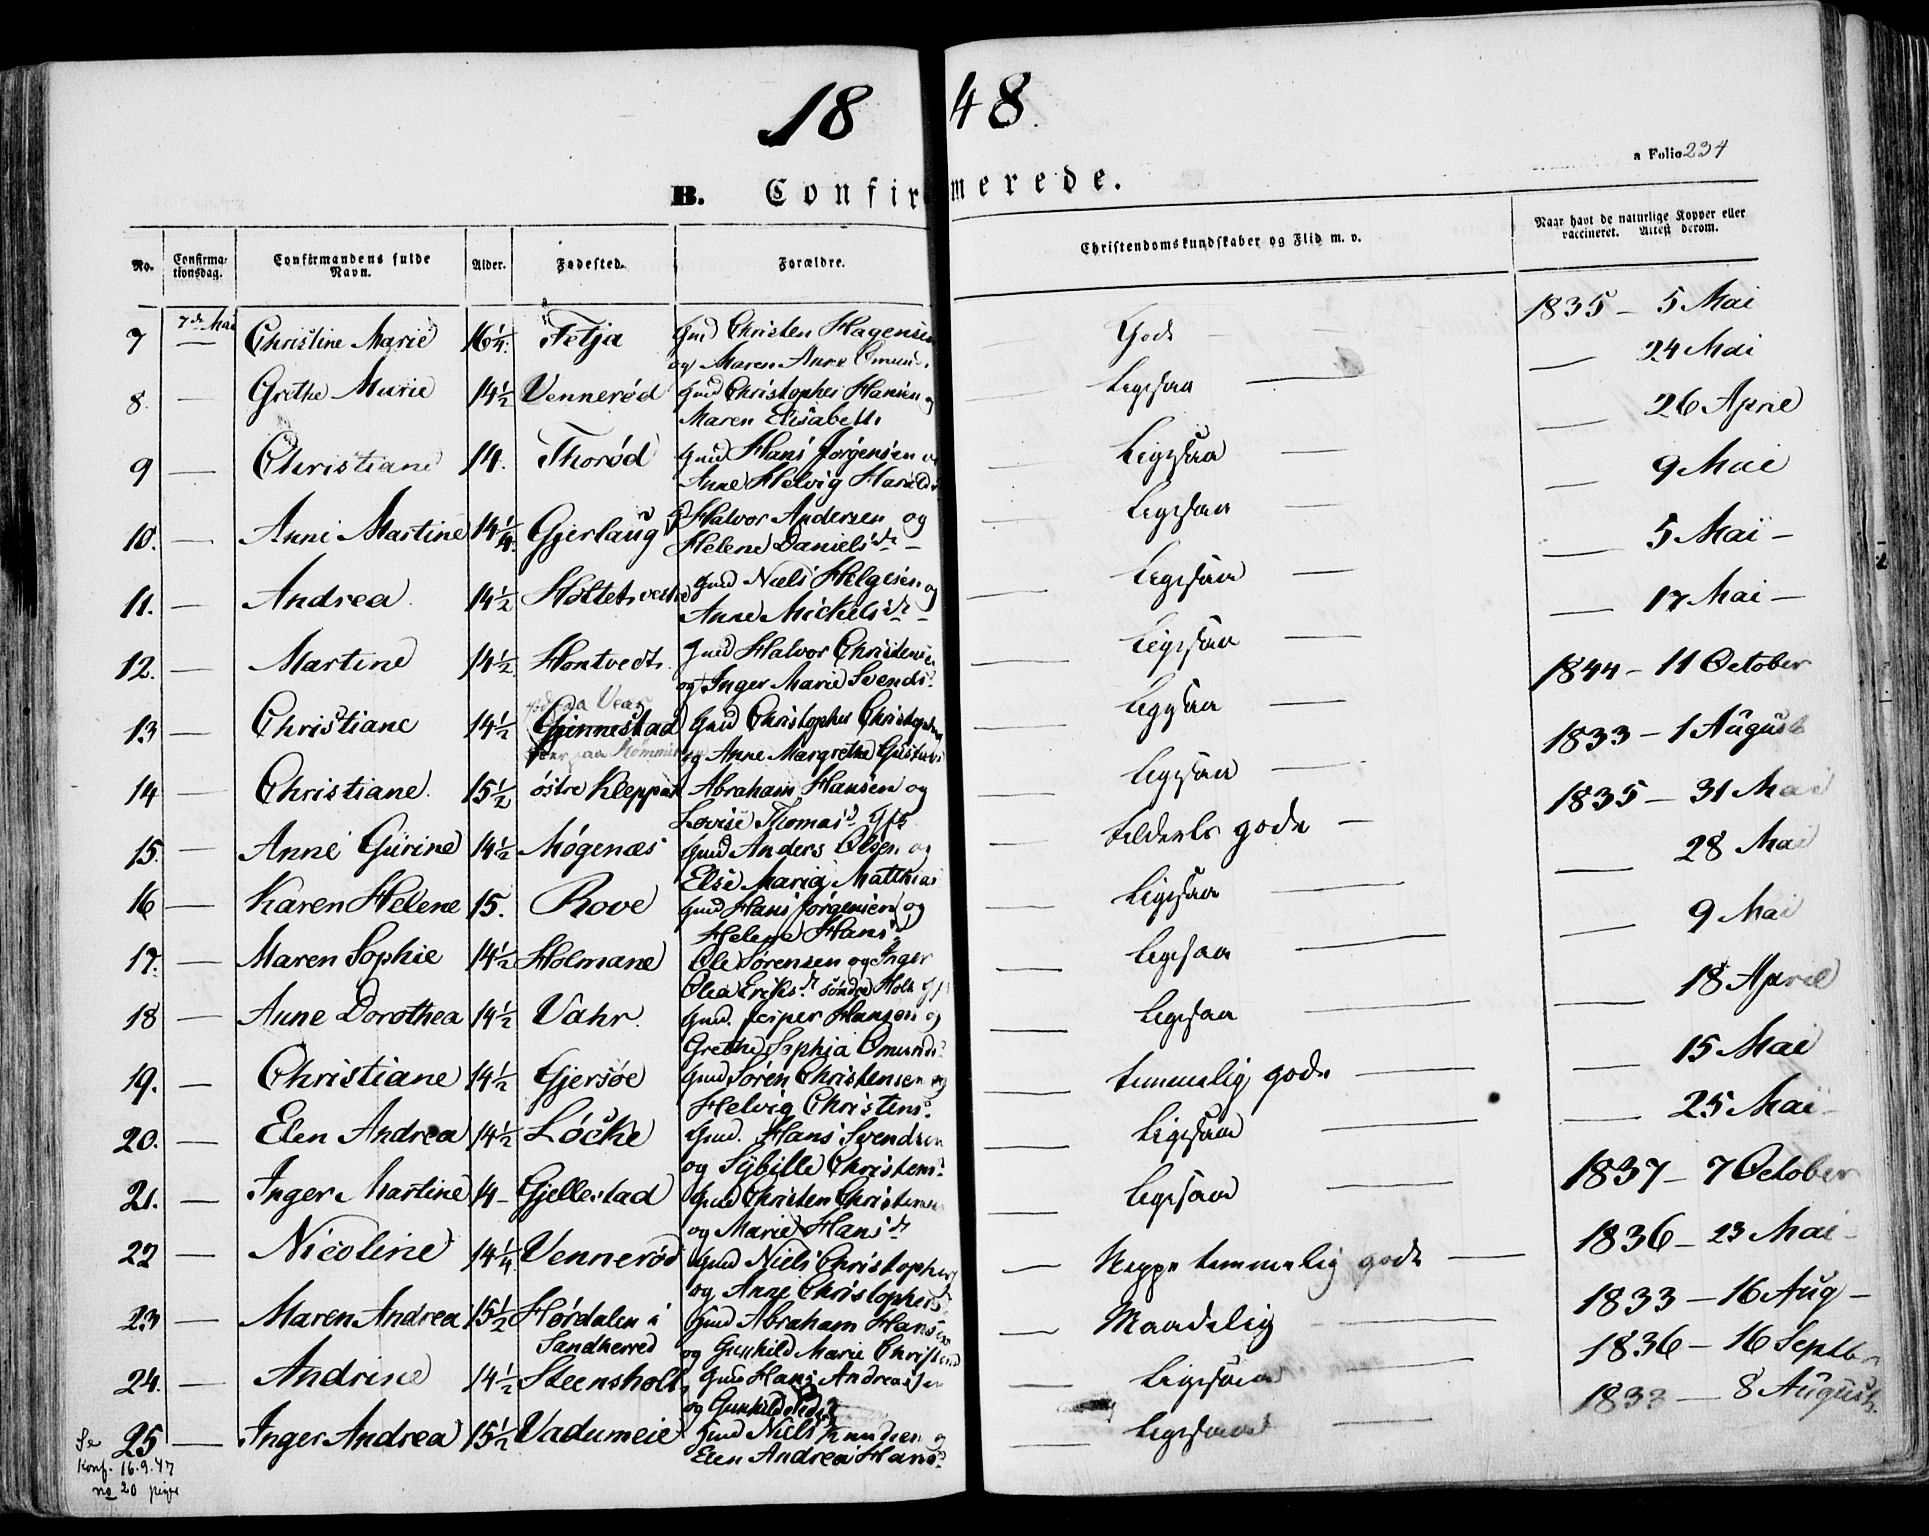 1848.
a Folio 234
B. Confirmerede.
No. Confirma-tionsdag. Confirmandens fulde Navn. Alder. Fødested. Forældre. Christendomskundskaber og Flid m. v. Naar havt de naturlige Kopper eller vaccineret. Attest derom.
7 7de Mai Christine Marie 16¼. Fetja Gmd Christen Hagensen God 1835 – 5 Mai
og Maren Anne
8. — Grethe Marie 14½ Vennerød Gmd Christopher Hansen og Ligesaa — — 24 Mai
Maren Elisabeth
9 — Christiane 14. Thorød Gmd Hans Jørgensen Ligesaa — — 26 April
Anne Helvig Haralds
10. — Anne Martine 14¼. Gjerlaug Halvor Andersen og Ligesaa — — 9 Mai
Helene Danielsdr –
11. — Andrea 14½ Holtet vestre Gmd Niels Helgesen og — Ligesaa — — 5 Mai –
Anne Mickelsdr –
12. — Martine 14½ Hontvedt. Gmd Halvor Christensen — Ligesaa — — 17 Mai –
og Inger Marie Svends
13 — Christiane 14½ Ginnestad Gmd Christopher — Ligesaa — 1844 – 11 October
og Anne Margrethe
14 — Christiane 15½ østre Kleppan Abraham Hansen og — Ligesaa — 1833 – 1 August
Lovise Thomasd. Gft
15 — Anne Gurine 14½ Møgenæs Gmd Anders Olsen og — gode — 1835 – 31 Mai
Else Maria Matthias
16 — Karen Helene 15. Rove Gmd Hans Jørgensen og — Ligesaa — — 28 Mai
Helene Hans
17. — Maren Sophie 14½ Holmane Ole Sørensen og Inger — Ligesaa — — 9 Mai
Olea Eriksd. søndre Holt
18 — Anne Dorothea 14½ Vahr. Gmd. Jesper Hansen og — Ligesaa — — 18 April
Grethe Sophia Omunds
19. — Christiane 14½ Gjersøe Gmd Søren Christensen og — temmelig gode — — 15 Mai
Helvig Christens.
20. — Elen Andrea 14½ Løcke Gmd. Hans Svendsen — Ligesaa — — 25 Mai –
og Sybille Christens.
21. — Inger Martine 14 – Gjellestad Gmd Christen Christensen — Ligesaa — 1837 – 7 October
og Marie Hansdr
22 — Nicoline 14¼ Vennerød Gmd Niels Christophers — Neppe temmelig gode — 1836 – 23 Mai –
og Anne Christophers
23 — Maren Andrea 15½ Hørdalen i Gmd Abraham Hansen — Maadelig 1833 – 16 Aug –
Sandherred og Gunhild Marie
24. — Andrine 14½ Steensholt Gmd Hans Andreasen — Ligesaa — 1836 – 16 Septbr
og Gunhild
25 — Inger Andrea 15½ Vadumeie Gmd Niels Knudsen og — Ligesaa — 1833 — 8 August.
Elen Andrea Hans
Se
Konf. 16.9.47
no 20 piger